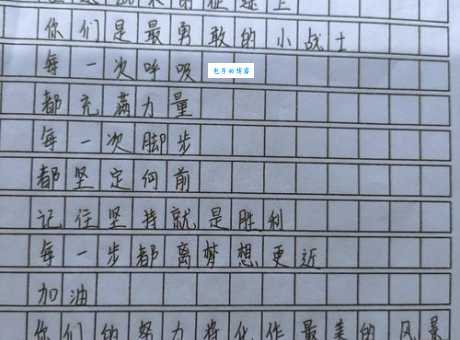 的征途上
你们是最勇敢的小战士
每一次呼吸
都充满力量
每一次脚步
都坚定向前
记住坚持就是胜利
每一步都离梦想更近
加油
你们的努力将化作最美的风景